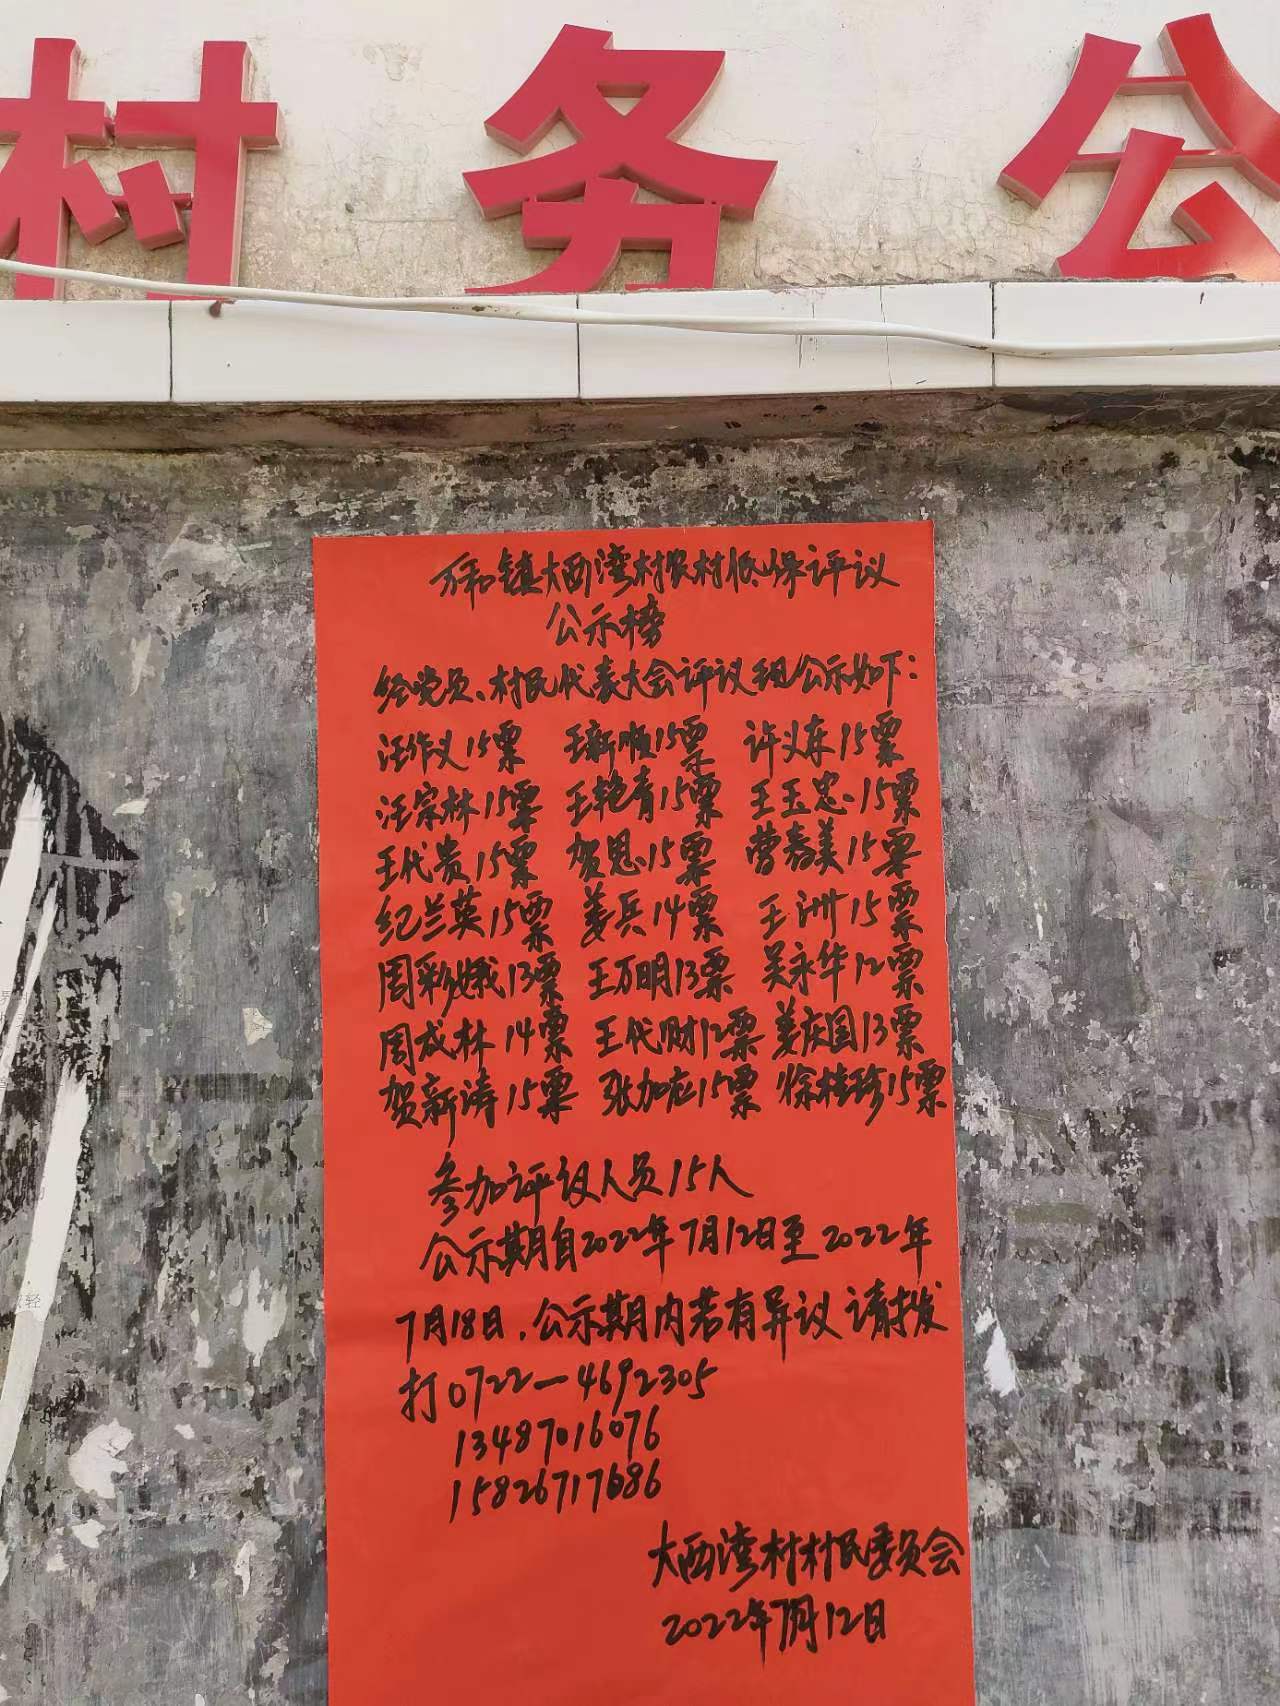 村务公
万和镇大西湾村农村低保评议
公示榜
经党员、村民代表大会评议组公示如下：
汪作义15票 王新顺15票 许义东15票
汪宗林15票 王艳青15票 王玉忠15票
王代贵15票 贺恩15票 曹春美15票
纪兰英15票 姜兵14票 王洲15票
周彩娥13票 王万明13票 吴永华12票
周成林14票 王代财12票 姜庆国13票
贺新涛15票 张加应15票 徐桂珍15票
参加评议人员15人
公示期自2022年7月12日至2022年
7月18日，公示期内若有异议请拨
打0722—4692305
13487016076
15826717686
大西湾村村民委员会
2022年7月12日